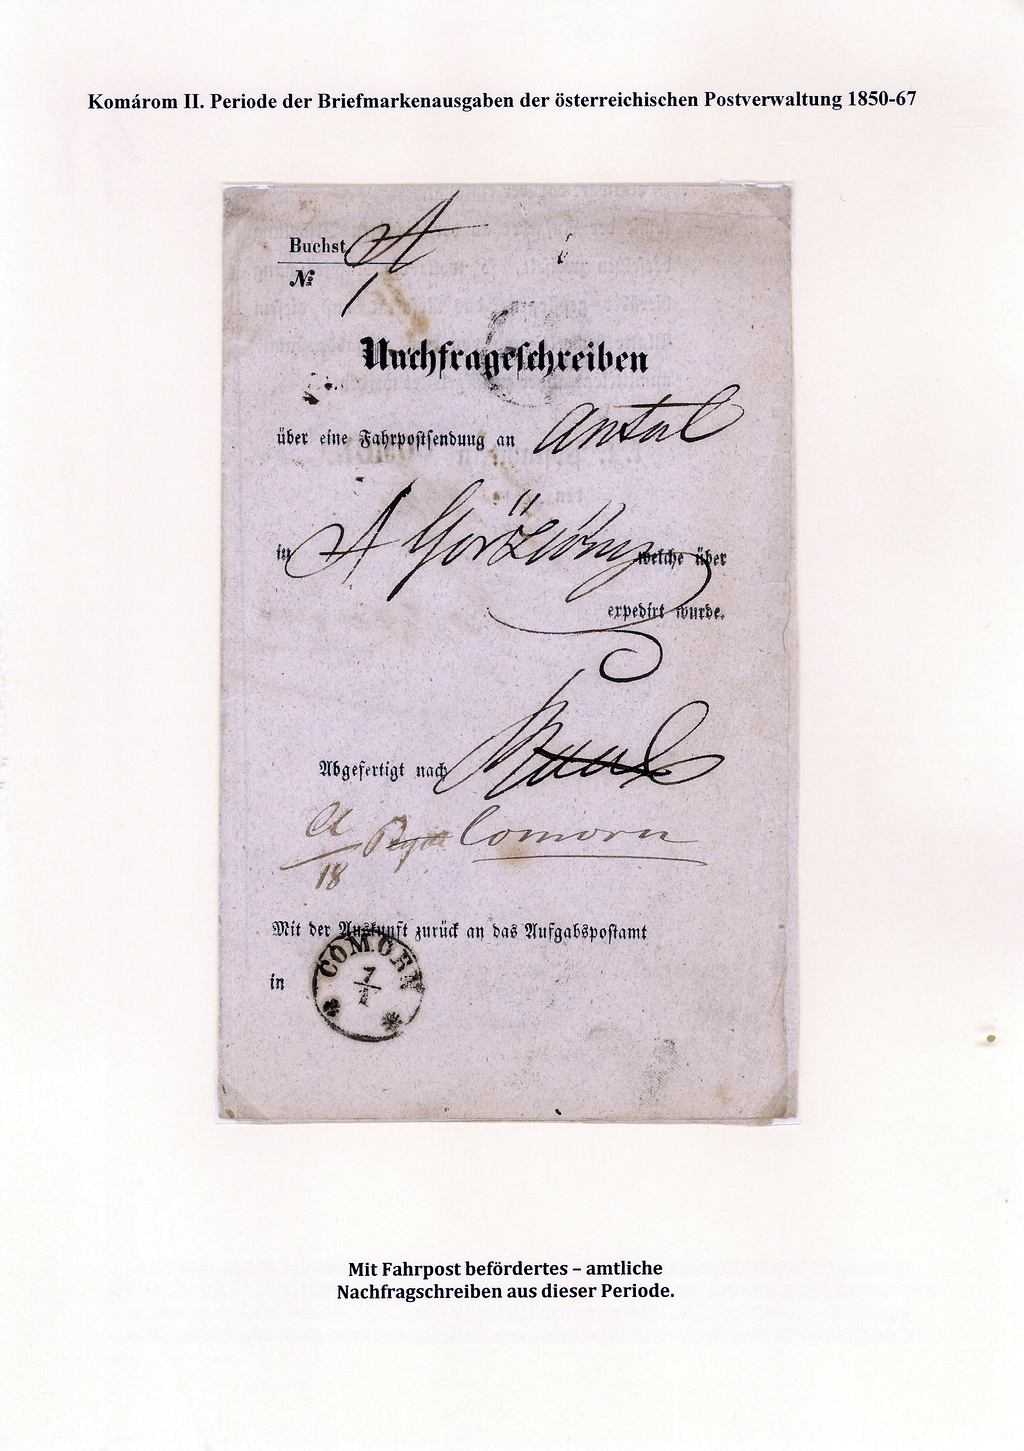 Komárom II. Periode der Briefmarkenausgaben der österreichischen Postverwaltung 1850-67
Buchst. A
№ 1
Nachfrageschreiben
über eine Fahrpostsendung an Antal
in A welche über
expedirt wurde.
Abgefertigt nach
A
18 Comorn
Mit der Auskunft zurück an das Aufgabspostamt
in COMORN
7/1
Mit Fahrpost befördertes – amtliche
Nachfragschreiben aus dieser Periode.